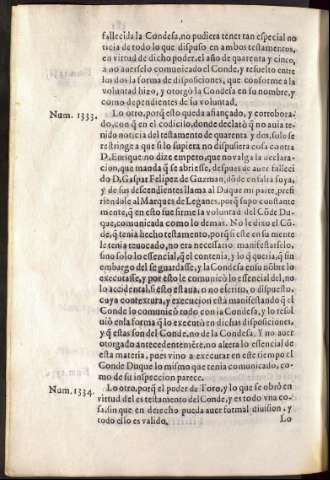 fallecida la Condesa, no pudiera tener tan especial no
ticia de todo lo que dispuso en ambos testamentos,
en virtud de dicho poder, el año de quarenta y cinco,
a no auerselo comunicado el Conde, y resuelto entre
los dos la forma de disposiciones, que conforme a la
voluntad hizo, y otorgò la Condesa en su nombre, y
como dependientes de la voluntad.
Num. 1333. Lo otro, porq̃ esto queda afiançado, y corrobora-
do, con q̃ en el codicilo, donde declarò q̃ no auia te-
nido noticia del testamento de quarenta y dos, solo se
restringe a que si lo supiera no dispusiera cosa contra
D. Enrique: no dize empero, que no valga la declara-
cion, que manda q̃ se abriesse, despues de auer falleci-
do D. Gaspar Felipez de Guzman, dõde en falta suya,
y de sus descendientes llama al Duque mi parte, pref-
riendole al Marques de Leganes, porq̃ supo constante
mente, q̃ en esto fue firme la voluntad del Cõde Du-
que, comunicada como lo demas. No le dixo el Cõ-
de, q̃ tenia hecho testamento, porq̃ si este en su mente
le tenia reuocado, no era necessario manifestarselo,
sino solo lo essencial, q̃ el contenia, y lo q̃ queria, q̃ sin
embargo del se guardasse, y la Condesa en su nõbre lo
executasse, y por esto le comunicò lo essencial del, no
lo accidental, si esto estaua, o no escrito, o dispuesto,
cuya contextura, y execucion està manifestando q̃ el
Conde lo comunicò todo con la Condesa, y lo resol-
uiò en la forma q̃ lo executò en dichas disposiciones,
y q̃ estas son del Conde, no de la Condesa. Y no auer
otorgado antecedentemẽte, no altera lo essencial de
esta materia, pues vino a executar en este tiempo el
Conde Duque lo mismo que tenia comunicado, co-
mo de su inspeccion parece.
Num. 1334. Lo otro, porq̃ el poder de Toro, y lo que se obrò en
virtud del es testamento del Conde, y es todo vna co-
sa, sin que en derecho pueda auer formal diuision, y
todo ello es valido.
Lo